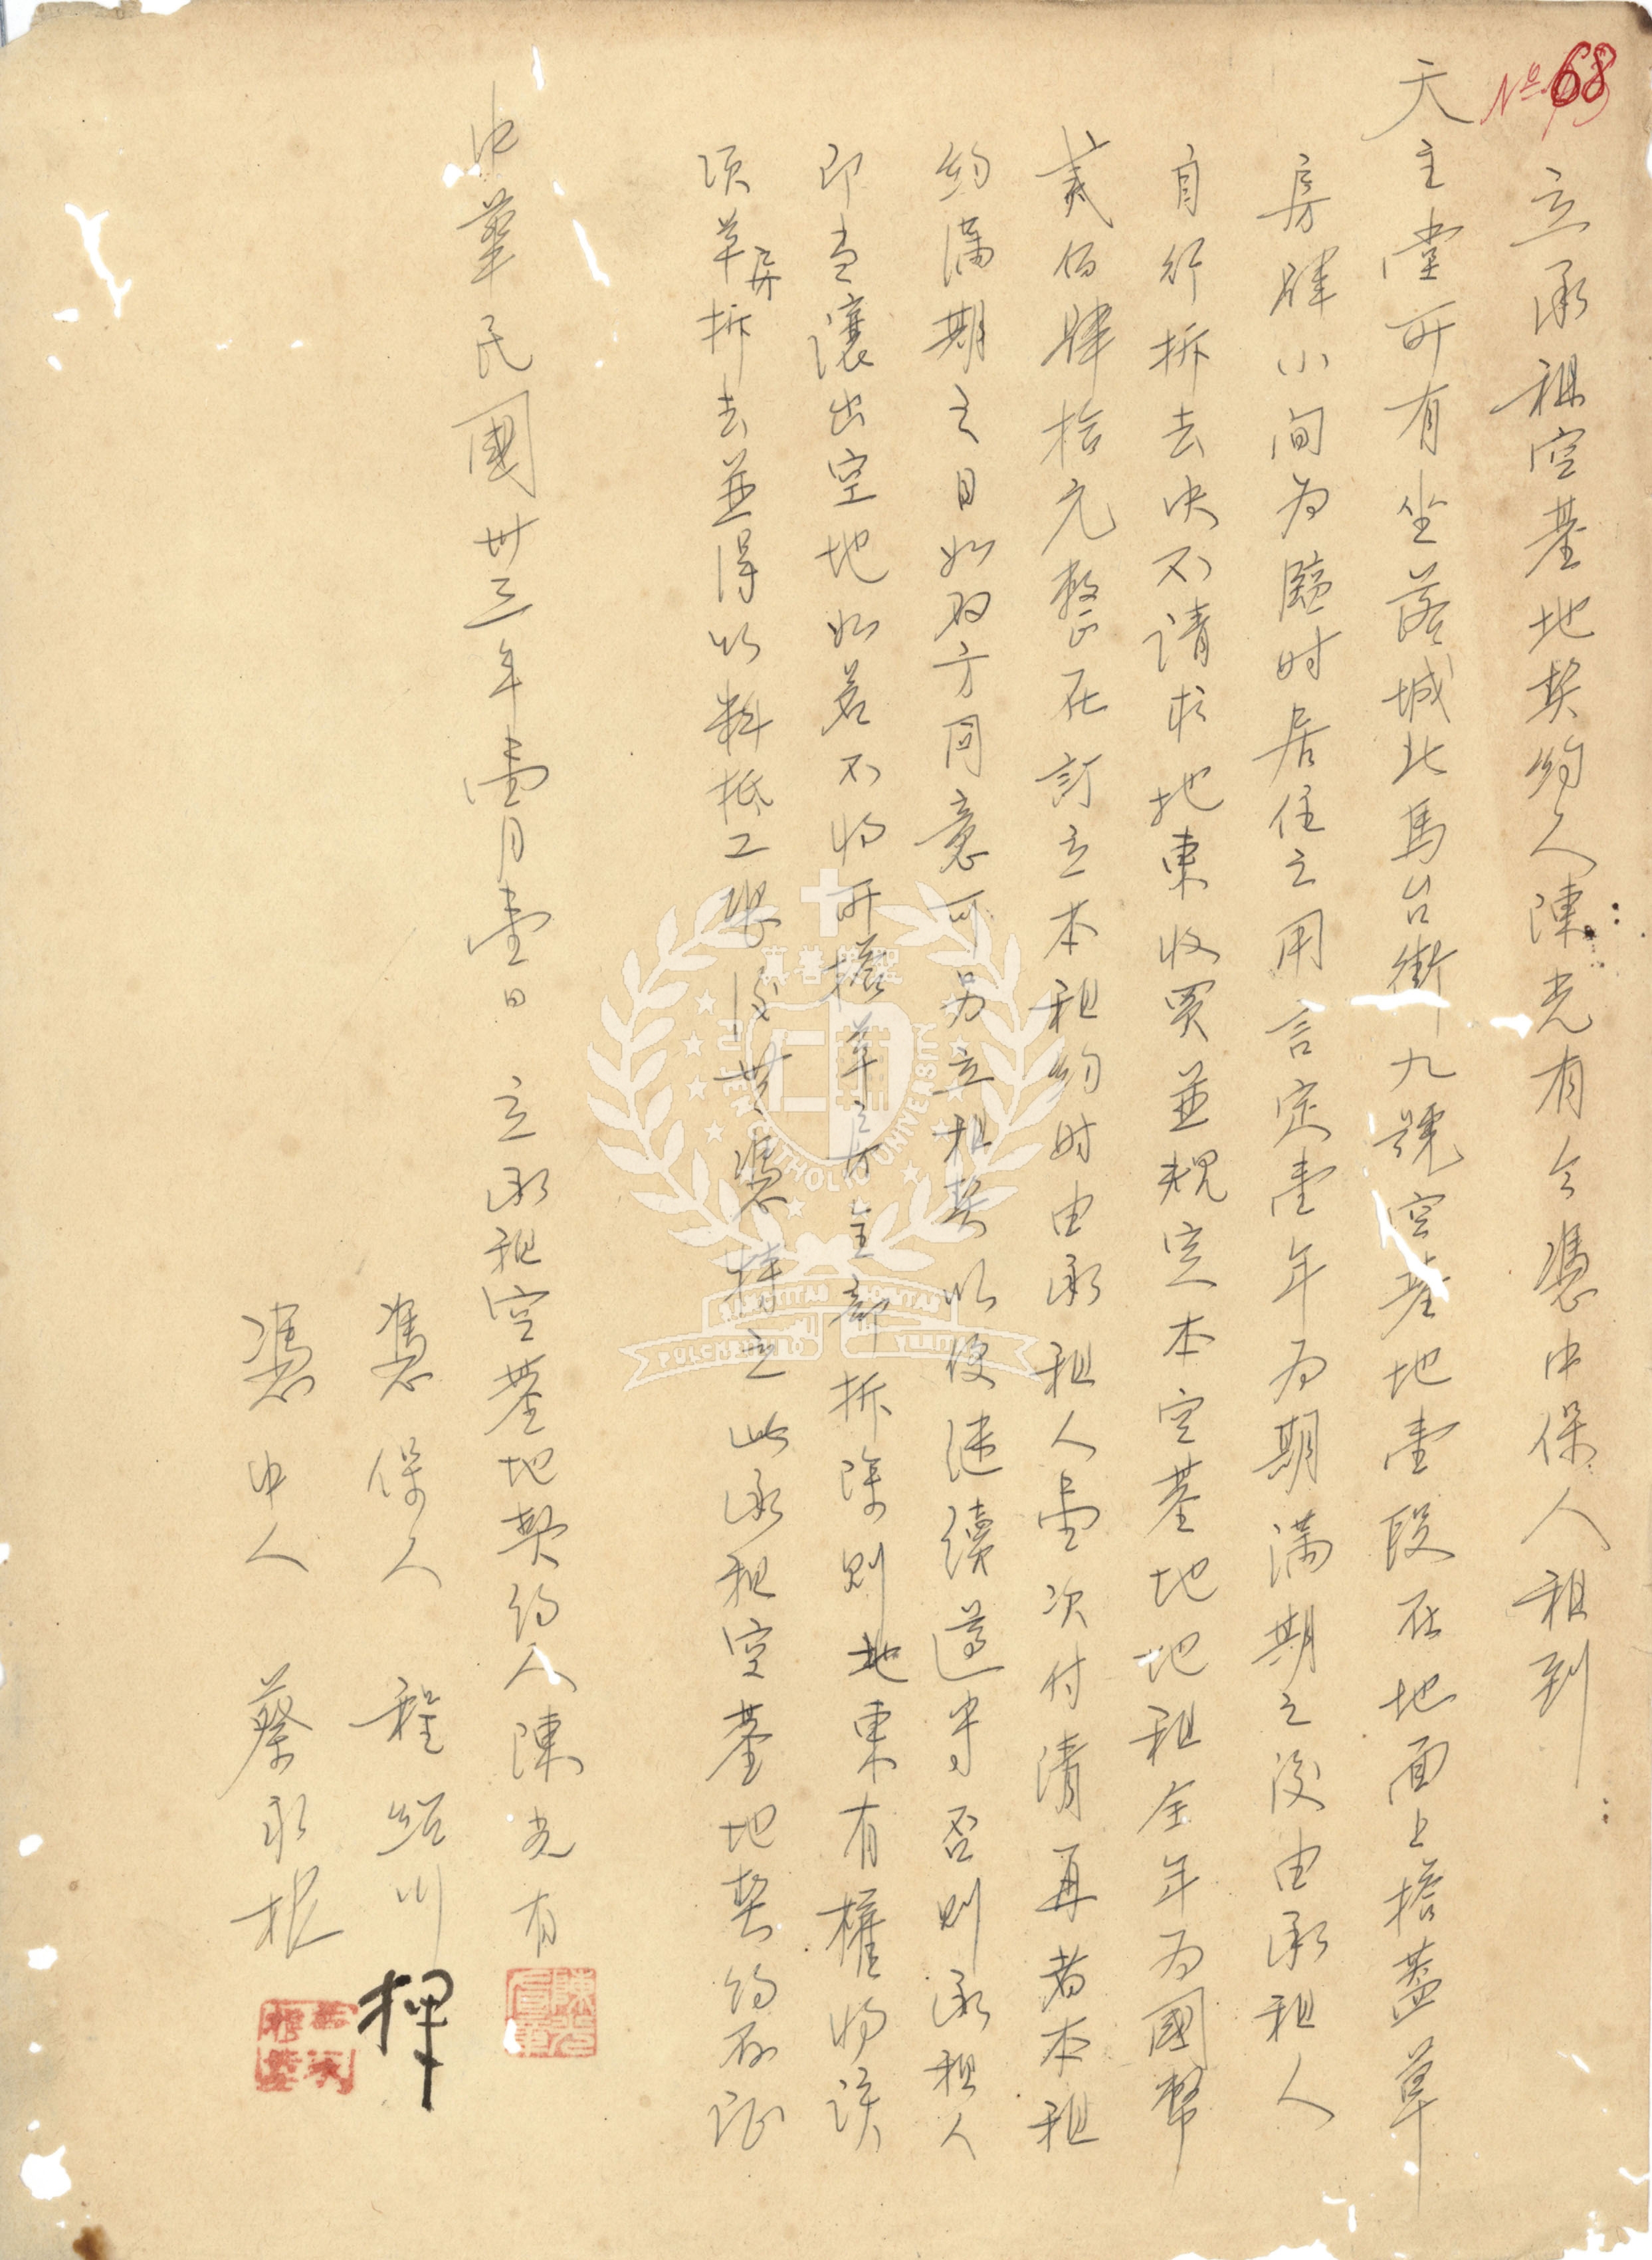 № 68
立承租空基地契約人陳光有今憑中保人租到
天主堂所有坐落城北馬台街九號空基地壹段在地面上搭蓋草
房肆小间为臨时居住之用言定壹年为期满期之後由承租人
自行拆去决不请求地東收買並規定本空基地地租全年为國幣
貳佰肆拾元整在訂立本租約时由承租人壹次付清再者本租
約满期之日如双方同意可另立租契以便继續遵守否則承租人
即当讓出空地如若不将所搭草房全部拆除則地東有權将该
项草房拆去並得以料抵工恐後無憑特立此承租空基地契約存证
中華民國卅三年壹月壹日 立承租空基地契约人陳光有
憑保人 程紹川 押
憑中人 蔡永根
FU JEN CATHOLIC UNIVERSITY
真善美聖
SANCTITAS BONITAS
PULCHRITUDO VERITAS